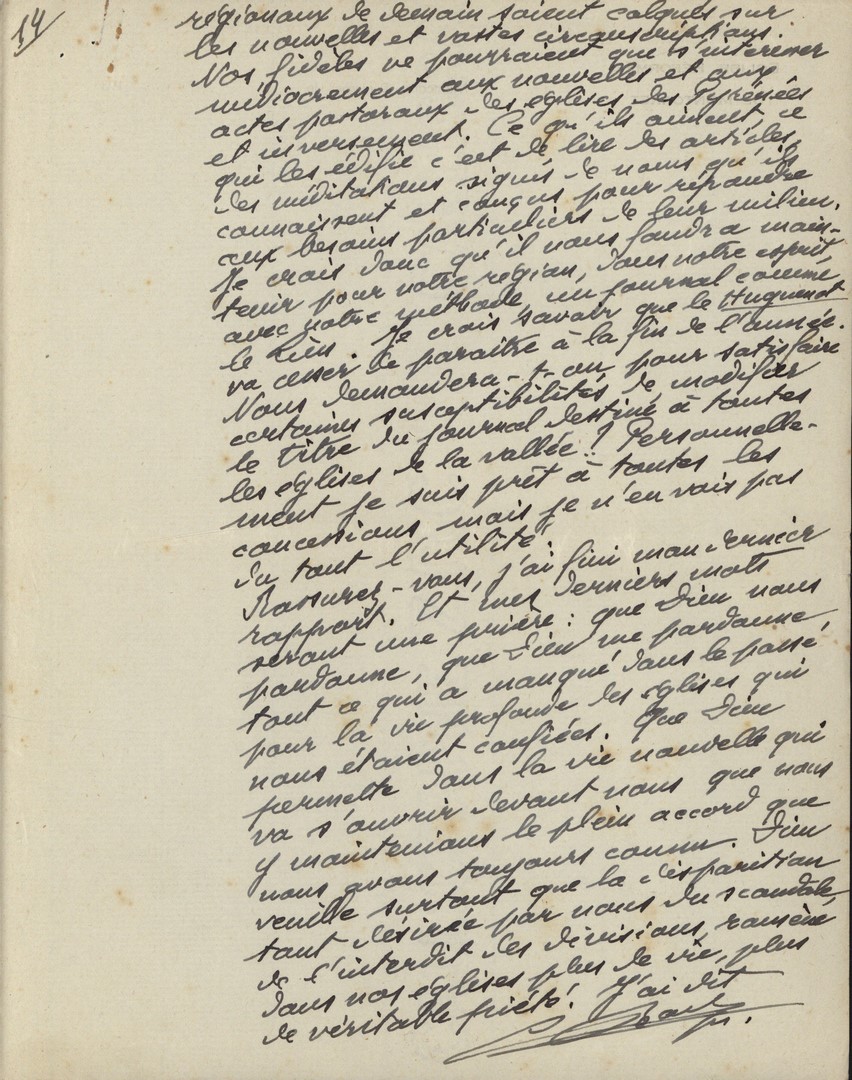 14
régionaux de demain soient calqués sur
les nouvelles et vastes circonscriptions.
Nos fidèles ne pourraient que s'intéresser
médiocrement aux nouvelles et aux
actes pastoraux des églises des Pyrénées
et inversement. Ce qu'ils aiment, ce
qui les édifie c'est de lire des articles,
des méditations signés de noms qu'ils
connaissent et conçus pour répondre
aux besoins particuliers de leur milieu.
Je crois donc qu'il nous faudra main-
tenir pour notre région, dans notre esprit,
avec notre méthode, un journal comme
le Lien. Je crois savoir que le Huguenot
va cesser de paraître à la fin de l'année.
Nous demandera-t-on pour satisfaire
certaines susceptibilités de modifier
le titre du journal destiné à toutes
les églises de la vallée ? Personnelle-
ment je suis prêt à toutes les
concessions mais je n'en vois pas
du tout l'utilité.
Rassurez-vous, j'ai fini mon dernier
rapport. Et mes derniers mots
seront une prière : que Dieu nous
pardonne, que Dieu me pardonne
tout ce qui a manqué dans le passé,
pour la vie profonde des églises qui
nous étaient confiées. Que Dieu
permette dans la vie nouvelle qui
va s'ouvrir devant nous que nous
y maintenions le plein accord que
nous avons toujours connu. Dieu
veuille surtout que la disparition
tant désirée par nous du scandale,
de l'interdit des divisions, ramène
dans nos églises plus de vie, plus
de véritable piété ! J'ai dit